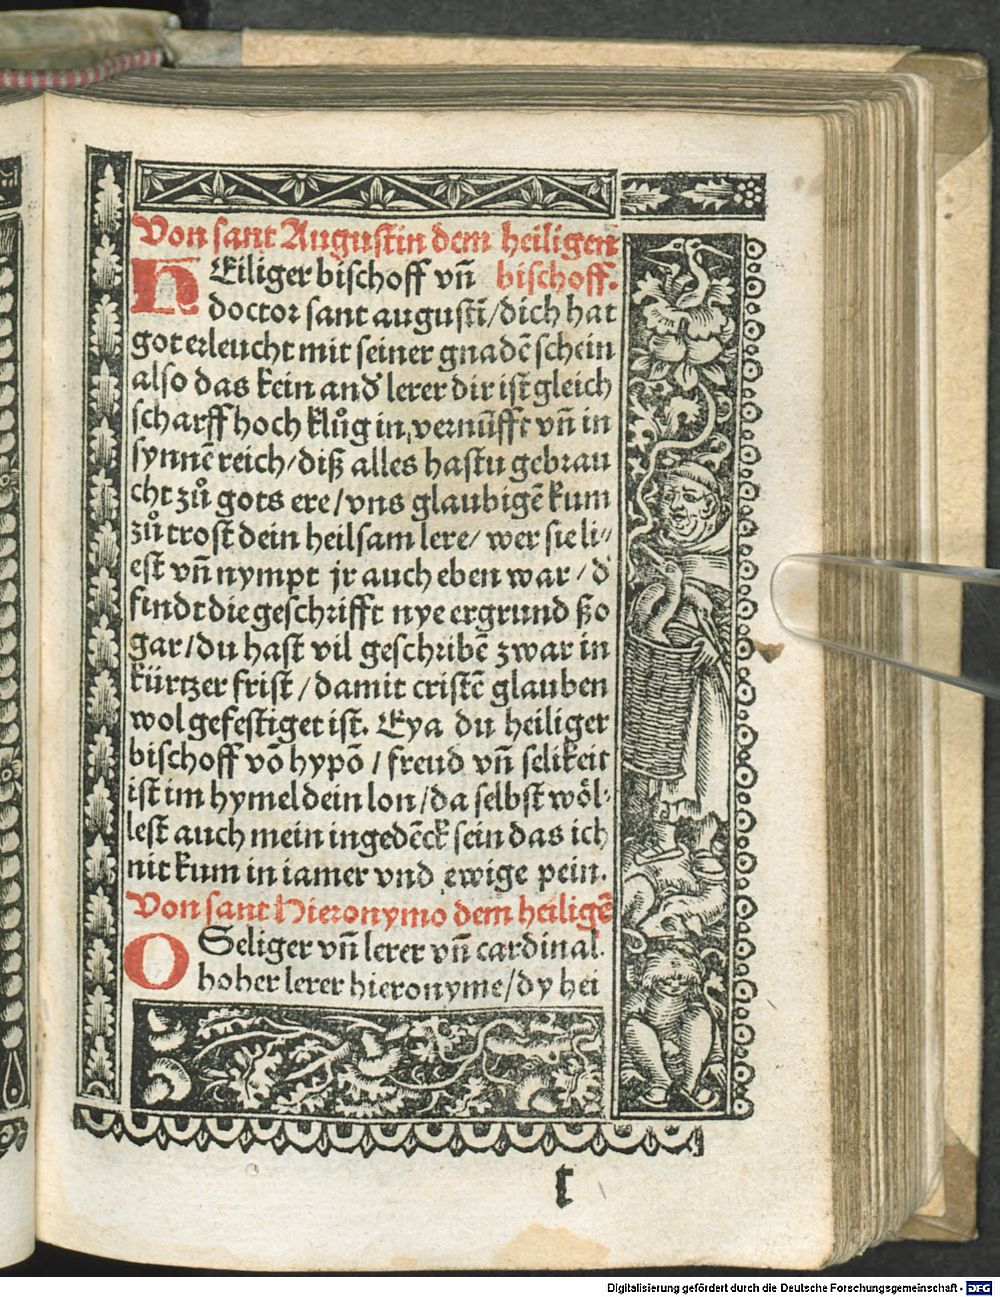 Von sant Augustin dem heiligen
HEiliger bischoff vn̄ bischoff.
doctor sant augustī/dich hat
got erleucht mit seiner gnadē schein
also das kein and᷑ lerer dir ist gleich
scharff hoch klůg in vernūfft vn̄ in
synnē reich/diß alles hastu gebrau
cht zů gots ere/vns glaubigē kum
zů trost dein heilsam lere/ wer sie li⸗
est vn̄ nympt jr auch eben war/d᷑
findt die geschrifft nye ergrund ßo
gar/du hast vil geschribē zwar in
kürtzer frist/damit cristē glauben
wol gefestiget ist. Eya du heiliger
bischoff vō hypō/freud vn̄ selikeit
ist im hymel dein lon/da selbst wöl⸗
lest auch mein ingedēck sein das ich
nit kum in iamer vnd ewige pein.
Von sant Hieronymo dem heiligē
O Seliger vn̄ lerer vn̄ cardinal.
hoher lerer hieronyme/dy hei
t
Digitalisierung gefördert durch die Deutsche Forschungsgemeinschaft - DFG